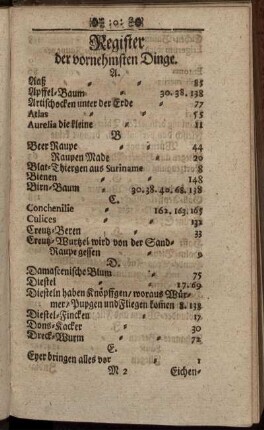 :0:
Register
der vornehmsten Dinge.
A.
Aaß 85
Apffel-Baum 30. 38. 138
Artischocken unter der Erde 77
Atlas 55
Aurelia die kleine 11
B
Beer Raupe 44
Raupen Made 20
Blat-Thiergen aus Suriname 8
Bienen 148
Birn-Baum 30. 38. 40. 68. 138
C.
Conchenilie 162. 163. 165
Culices 132
Creutz-Beren 33
Creutz-Wurtzel wird von der Sand-
Raupe gessen 9
D.
Damascenische Blum 75
Diestel 17. 69
Diesteln haben Knöpffgen, woraus Wür-
mer, Puppen und Fliegen komen 8. 138
Diestel-Fincken 17
Dons-Kacker 30
Dreck-Wurm 72
E.
Eyer bringen alles vor 1
M 2 Eichen-